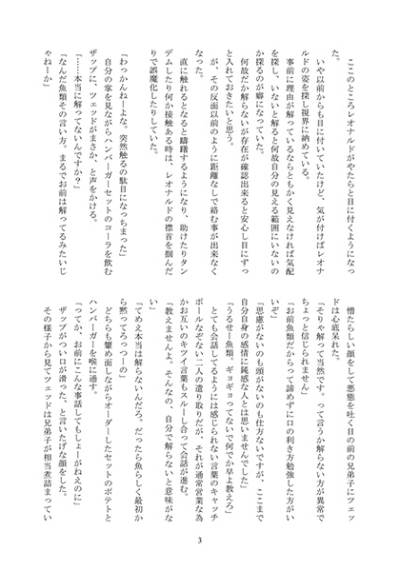 ここのところレオナルドがやたらと目に付くようになっ
た。
　いや以前からも目に付いていたけど、気が付けばレオナ
ルドの姿を探し視界に納めている。
　事前に理由が解っているならともかく見えなければ気配
を探し、いないと解ると何故自分の見える範囲にいないの
か探るのが癖になっていた。
　何故だか解らないが存在が確認出来ると安心し目にずっ
と入れておきたいと思う。
　が、その反面以前のように距離なしで絡む事が出来なく
なった。
　直に触れるとなると躊躇するようになり、助けたりタン
デムしたり何か接触ある時は、レオナルドの襟首を掴んだ
りで誤魔化したりしていた。
「わっかんねーよな、突然触るの駄目になっちまった」
　自分の掌を見ながらハンバーガーセットのコーラを飲む
ザップに、ツェッドがまさか、と声をかける。
「……本当に解ってないんですか？」
「なんだ魚類その言い方。まるでお前は解ってるみたいじ
ゃねーか」
　憎たらしい顔をして悪態を吐く目の前の兄弟子にツェッ
ドは心底呆れた。
「そりゃ解って当然です。って言うか解らない方が異常で
ちょっと信じられません」
「お前魚類だからって諦めずに口の利き方勉強した方がい
いぞ」
「思慮がないのも頭がないのも仕方ないですが、ここまで
自分自身の感情に鈍感な人とは思いませんでした」
「うるせー魚類。ギョギョってないで何でか早よ教えろ」
　とても会話してるようには感じられない言葉のキャッチ
ボールなぞない二人の遣り取りだが、それが通常営業な為
かお互いのキツイ言葉もスルーし合って会話が進む。
「教えませんよ。そんなの、自分で解らないと意味がな
い」
「てめえ本当は解らないんだろ。だったら魚らしく最初か
ら黙ってろっつーの」
　どちらも顰め面しながらオーダーしたセットのポテトと
ハンバーガーを喉に通す。
「ってか、お前にこんな事話してもしょーがねえのに」
　ザップがつい口が滑った、と言いたげな顔をした。
　その様子から見てツェッドは兄弟子が相当煮詰まってい
3